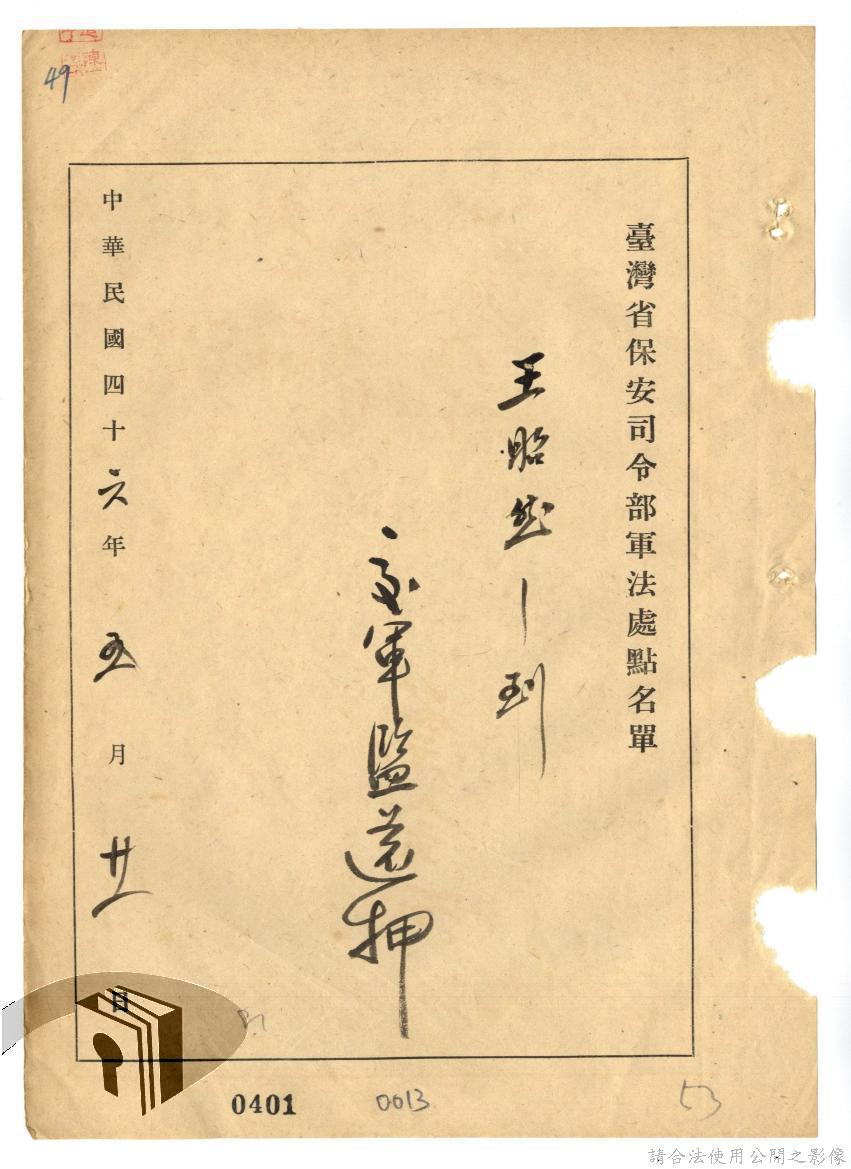 臺灣省保安司令部軍法處點名單
王昭然 到
交軍監還押
中華民國四十六年五月廿一日
49
0401
0013
53
請合法使用公開之影像